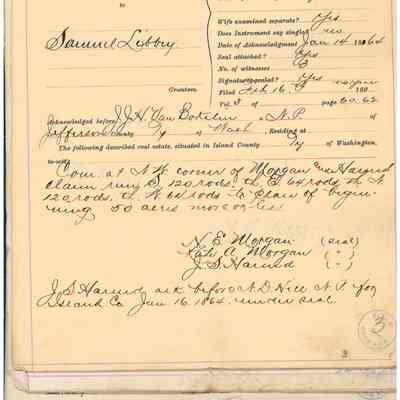 to
Samuel Libbey
Grantees.
Wife examined separate? Yes
Does Instrument say single? no
Date of Acknowledgment Jan 14 1864
Seal attached? Yes
No. of witnesses
Signature sealed? Yes
Filed Feb 16
page 60.62
Acknowledged before J.H. Van Bokelin a N.P. of
Jefferson Ty of Wash. Residing at
The following described real estate, situated in Island County Ty of Washington,
to-wit:
Com. at N.W. corner of Morgan and Harund
claim runs S 120 rods. th E. 64 rods, th N.
120 rods, th W. 64 rods to place of begin-
ning 50 acres more or less
N. E. Morgan (seal)
A. Morgan ( " )
J. S. Harund ( " )
J. S. Harund ack before N. D. Hill N. P. for
Island Co Jan. 16. 1864. under seal